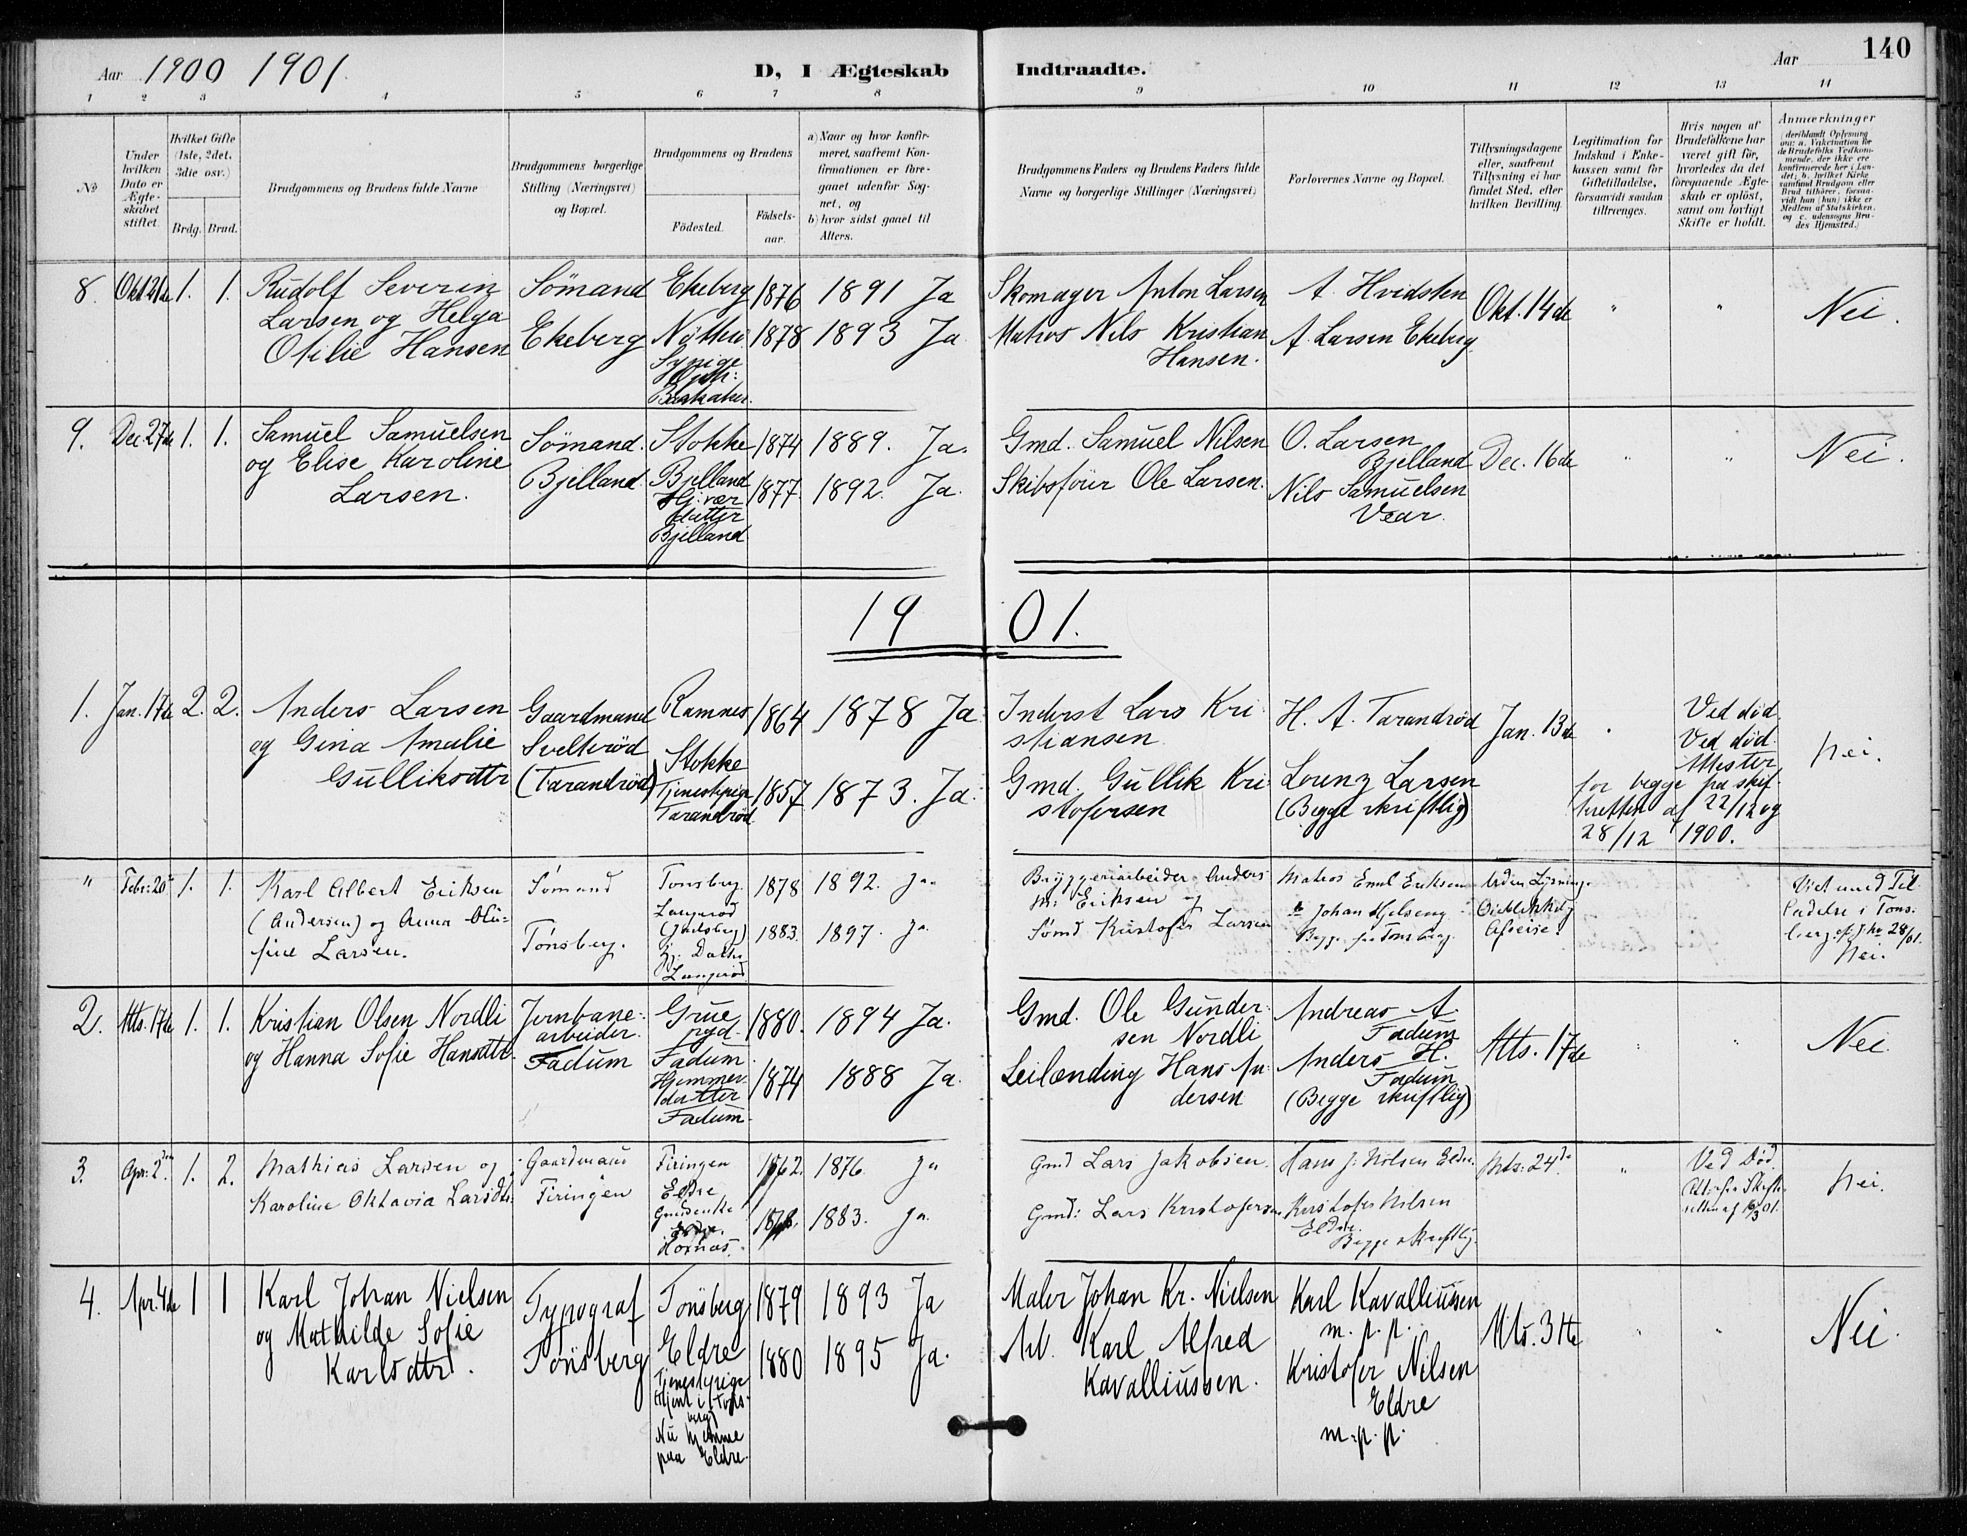 140
Aar 1900 1901.
D, I Ægteskab Indtraadte.
Aar
1 2 3 4 5 6 7 8 9 10 11 12 13 14
No
Under hvilken Dato er Ægteskabet stiftet.
Hvilket Gifte (1ste, 2det, 3die osv.)
Brdg. Brud.
Brudgommens og Brudens fulde Navne
Brudgommens borgerlige Stilling (Næringsvei) og Bopæl.
Brudgommens og Brudens
Fødested.
Fødselsaar.
a) Naar og hvor konfirmeret, saafremt Konfirmationen er foregaaet udenfor Sognet, og
b) hvor sidst gaaet til Alters.
Brudgommens Faders og Brudens Faders fulde Navne og borgerlige Stillinger (Næringsvei)
Forlovernes Navne og Bopæl.
Tillysningsdagene eller, saafremt Tillysning ei har fundet Sted, efter hvilken Bevilling.
Legitimation for Indskud i Enkekassen samt for Giftetilladelse, forsaavidt saadan tiltrænges.
Hvis nogen af Brudefolkene har været gift før, hvorledes da det foregaaende Ægteskab er opløst, samt om lovligt Skifte er holdt.
Anmærkninger
(deriblandt Oplysning om: a. Vakcination for de Brudefolks Vedkommende, der ikke ere konfirmerede her i Landet; b. hvilket Kirkesamfund Brudgom eller Brud tilhører, forsaavidt han (hun) ikke er Medlem af Statskirken, og c. udensogns Brudes Hjemsted.)
8. Okt 21de 1. 1. Rudolf Severin Sømand Ekeberg 1876 1891 Ja Skomager Anton Larsen A. Hvidsten Okt. 14de " " Nei.
Larsen og Helga Ekeberg Nøtterø 1878 1893 Ja Matros Nils Kristian A. Larsen Ekeberg
Otilie Hansen Hansen.
9. Dec. 27de 1. 1. Samuel Samuelsen Sømand. Stokke 1874 1889. Ja. Gmd. Samuel Nilsen O. Larsen Dec. 16de " " Nei.
og Elise Karoline Bjelland Bjelland 1877. 1892. Ja. Skibsfører Ole Larsen. Bjelland
Larsen. datter Nils Samuelsen
Bjelland Vear.
1901.
1. Jan. 17de 2. 2. Anders Larsen Gaardmand Ramnes 1864 1878 Ja Inderst Lars Kri H. A. Tarandrød Jan. 13de Ved død
og Gina Amalie Stokke stiansen Ved død. Nei.
Gulliksdtr (Tarandrød) Tjenestepige 1857 1873. Ja. Gmd. Gullik Kri Lorenz Larsen for begge fra skif
Tarandrød stofersen (Begge skriftlig) teretten af 22/12 og
28/12 1900.
" Febr: 20 1. 1. Karl Albert Eriksen Sømand Tønsberg. 1878 1892. Ja Bryggeriarbeider Anders Matros Emil Eriksen
(Andersen) og Anna Olu= (Jarlsberg) 1883. 1897. Ja Eriksen og Johan
fine Larsen. Tønsberg. Sømd Kristofer Larsen Begge fra Tønsberg. Afreise. Nei.
2. Mts. 17de 1. 1. Kristian Olsen Nordli Jernbane- Grue 1880. 1894 Ja. Gmd. Ole Gunder- Andreas A. Mts. 17de " " Nei.
og Hanna Sofie Hansdtr. arbeider sen Nordli Fadum
Fadum Fadum Hjemmedatter Fadum. 1874 1888 Ja. Leilænding Hans An Anders H. Fadum
dersen (Begge skriftlig)
3. Apr: 2den 1. 2. Mathias Larsen og Gaardmand Firingen 1862. 1876. Ja Gmd Lars Jakobsen. Hans J. Nilsen Eldre. Mts: 24de " Ved Død. Nei.
Karoline Oktavia Larsdtr. Firingen Eldre 1883. Ja. Gmd: Lars Kristofersen Kristofer Nilsen
Hornæs. Eldre.
Begge skriftlig.
4. Apr. 4de 1 1 Karl Johan Nielsen Typograf Tønsberg 1879 1893 Ja Maler Johan Kr. Nielsen Karl Kavalliussen Nei.
og Mathilde Sofie Tønsberg Eldre 1880 1895 Ja. Arb. Karl Alfred m. p. p. " "
Karlsdtr. Tjenestepige Kavalliussen. Kristofer Nilsen
Nu hjemme Eldre
paa Eldre. m. p. p.